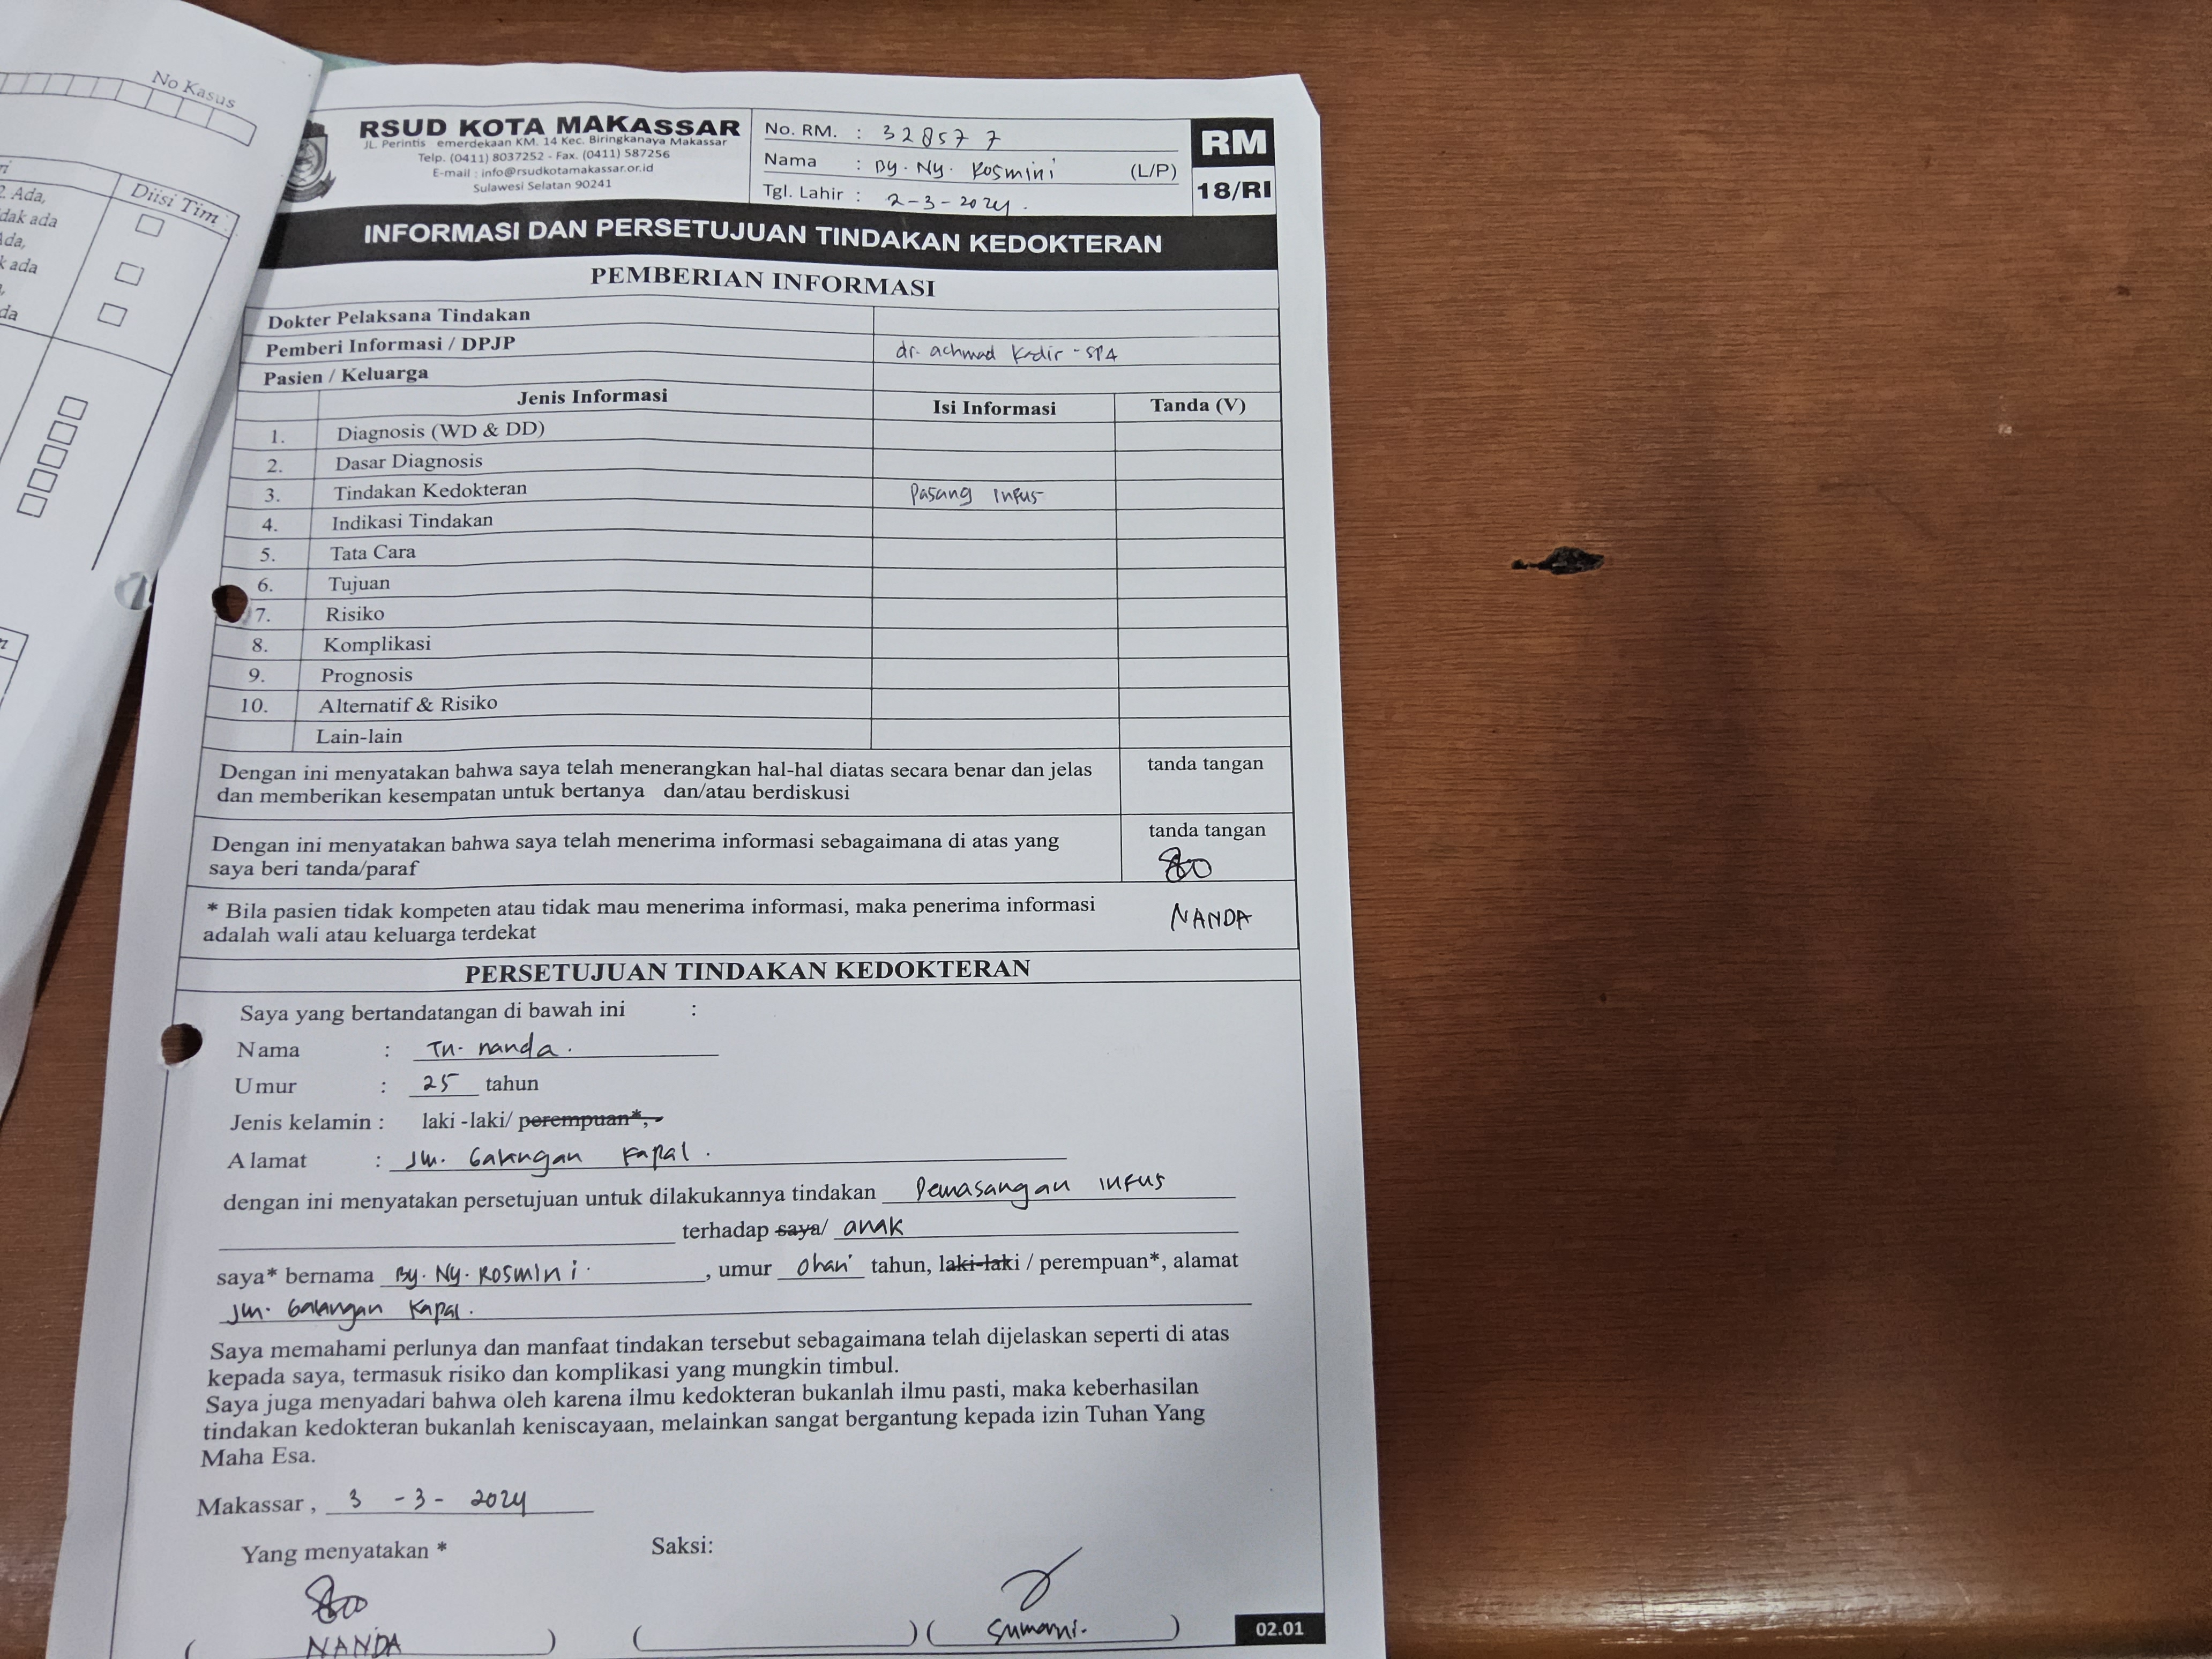 RSUD KOTA MAKASSAR
JL. Perintis emerdekaan KM. 14 Kec. Biringkanaya Makassar
Telp. (0411) 8037252 - Fax. (0411) 587256
E-mail : info@rsudkotamakassar.or.id
Sulawesi Selatan 90241
No. RM. : 328577
Nama : By. Ny. Rosmini (L/P)
Tgl. Lahir : 2-3-2024.
RM
18/RI
INFORMASI DAN PERSETUJUAN TINDAKAN KEDOKTERAN
PEMBERIAN INFORMASI
Dokter Pelaksana Tindakan
Pemberi Informasi / DPJP dr. achmad Kadir - SPA
Pasien / Keluarga
Jenis Informasi Isi Informasi Tanda (V)
1. Diagnosis (WD & DD)
2. Dasar Diagnosis
3. Tindakan Kedokteran Pasang Infus-
4. Indikasi Tindakan
5. Tata Cara
6. Tujuan
7. Risiko
8. Komplikasi
9. Prognosis
10. Alternatif & Risiko
Lain-lain
Dengan ini menyatakan bahwa saya telah menerangkan hal-hal diatas secara benar dan jelas tanda tangan
dan memberikan kesempatan untuk bertanya dan/atau berdiskusi
Dengan ini menyatakan bahwa saya telah menerima informasi sebagaimana di atas yang tanda tangan
saya beri tanda/paraf
* Bila pasien tidak kompeten atau tidak mau menerima informasi, maka penerima informasi NANDA
adalah wali atau keluarga terdekat
PERSETUJUAN TINDAKAN KEDOKTERAN
Saya yang bertandatangan di bawah ini :
Nama : Tn. nanda.
Umur : 25 tahun
Jenis kelamin : laki -laki/ perempuan*,
Alamat : Jln. Galangan Kapal.
dengan ini menyatakan persetujuan untuk dilakukannya tindakan Pemasangan infus
terhadap saya/ anak
saya* bernama By. Ny. Rosmini. , umur 0hari tahun, laki-laki / perempuan*, alamat
Jln. Galangan Kapal.
Saya memahami perlunya dan manfaat tindakan tersebut sebagaimana telah dijelaskan seperti di atas
kepada saya, termasuk risiko dan komplikasi yang mungkin timbul.
Saya juga menyadari bahwa oleh karena ilmu kedokteran bukanlah ilmu pasti, maka keberhasilan
tindakan kedokteran bukanlah keniscayaan, melainkan sangat bergantung kepada izin Tuhan Yang
Maha Esa.
Makassar, 3 - 3 - 2024
Yang menyatakan * Saksi:
( NANDA ) ( ) ( Sumarni. )
02.01
No Kasus
Diisi Tim
2. Ada,
dak ada
da,
k ada
da